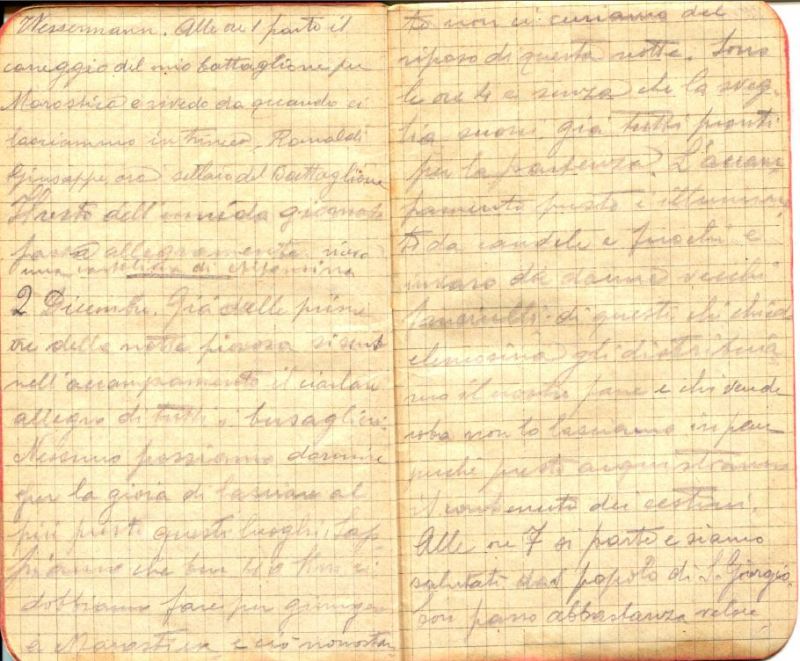 Wessermann. Alle ore 1 parte il
carreggio del mio battaglione per
Marostica e rivedo da quando ci
lasciammo in trincea, Ranaldi
Giuseppe, ora sellaio del Battaglione
Il resto della giornata
passa allegramente. ricevo
una cartolina di
2 Dicembre. Già dalle prime
ore della notte piovosa si sente
nell'accampamento il ciarlare
allegro di tutti i bersaglieri.
Nessuno possiamo dormire
per la gioia di lasciare al
più presto questi luoghi. Sap-
piamo che ben 40 Km ci
dobbiamo fare per giungere
a Marostica, e ciò nonostan-
te non ci curiamo del
riposo di questa notte. Sono
le ore 4 e senza che la sveg-
lia suoni già tutti pronti
per la partenza. L'accam-
pamento presto è illumina-
to da candele e fuochi e
invaso da donne vecchi
fanciulli: di questi chi chiede
elemosina gli distribuia-
mo il nostro pane e chi vende
roba non lo lasciamo in pen
poiché presto acquistiamo
il contenuto dei cestini.
Alle ore 7 si parte e siamo
salutati dal popolo di S. Giorgio.
Con passo abbastanza veloce